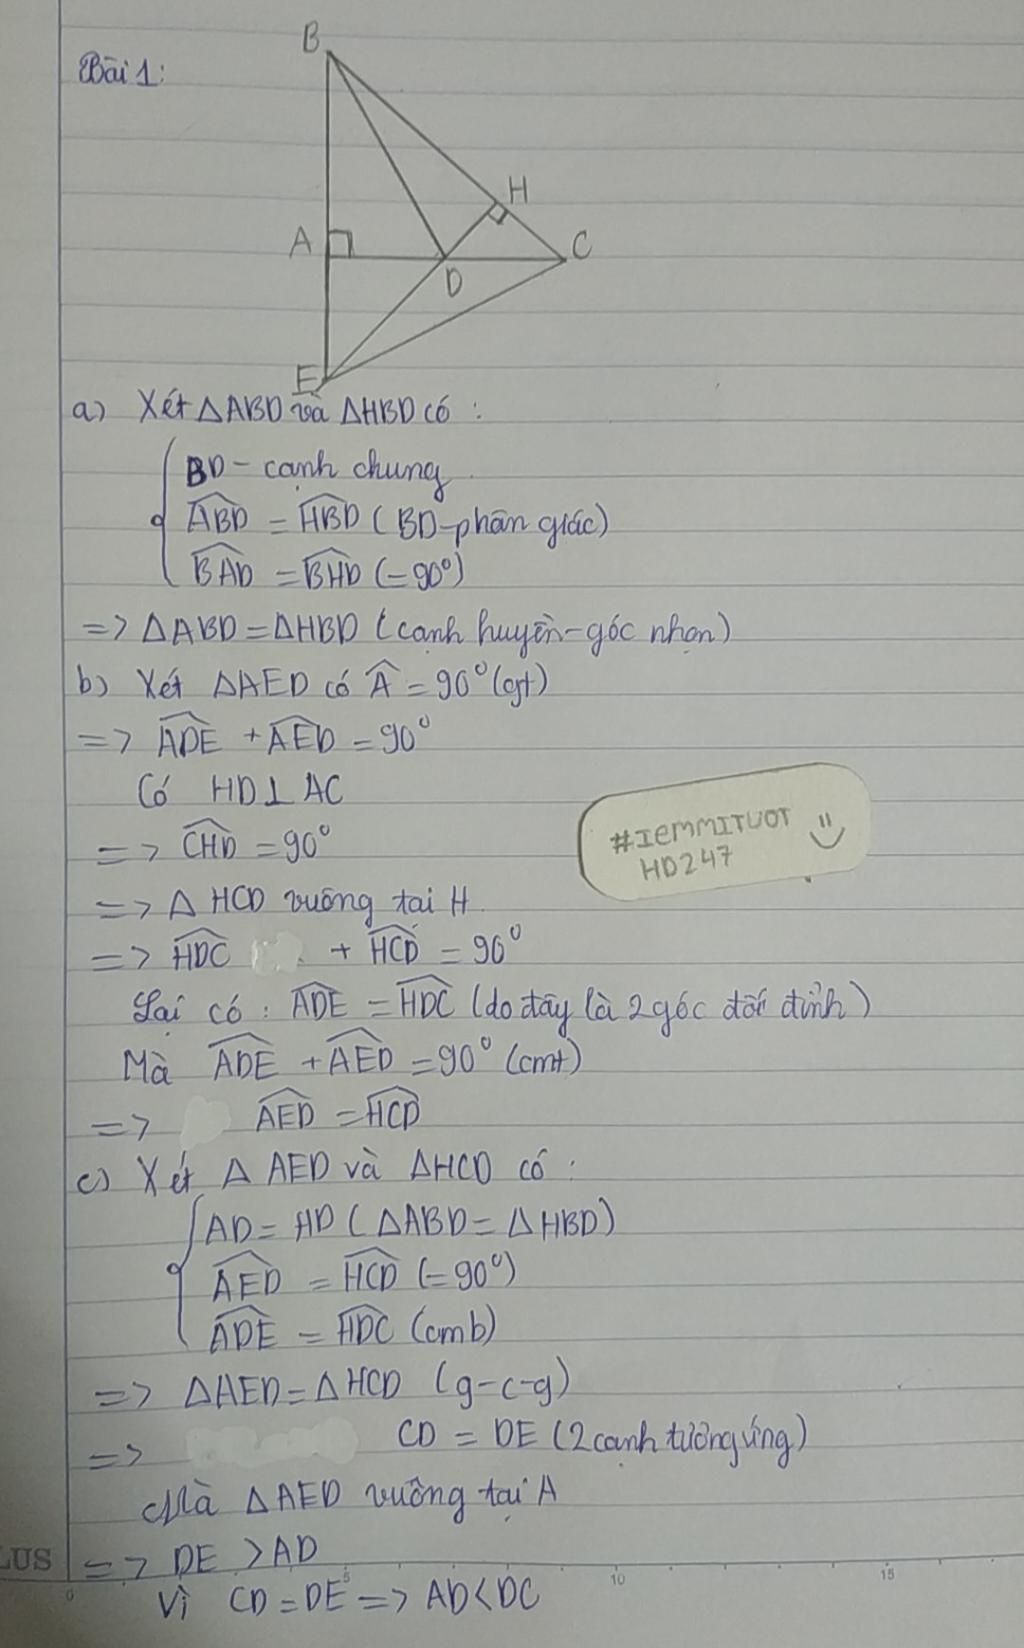 Bài 1:
B
H
A
C
D
E
a) Xét △ABD và △HBD có :
BD - cạnh chung
$\widehat{ABD}$ = $\widehat{HBD}$ (BD-phân giác)
$\widehat{BAD}$ = $\widehat{BHD}$ (=90°)
=> △ABD = △HBD (cạnh huyền-góc nhọn)
b) Xét △AED có $\widehat{A}$ = 90° (gt)
=> $\widehat{ADE}$ + $\widehat{AED}$ = 90°
Có HD⊥AC
=> $\widehat{CHD}$ = 90°
#IEMMITUOT
HD247
=> △ HCD vuông tại H
=> $\widehat{HDC}$ + $\widehat{HCD}$ = 90°
Lại có : $\widehat{ADE}$ = $\widehat{HDC}$ (do đây là 2 góc đối đỉnh)
Mà $\widehat{ADE}$ + $\widehat{AED}$ = 90° (cmt)
=> $\widehat{AED}$ = $\widehat{HCD}$
c) Xét △ AED và △HCD có :
AD = HD (△ABD = △HBD)
$\widehat{AED}$ = $\widehat{HCD}$ (=90°)
$\widehat{ADE}$ = $\widehat{HDC}$ (cmb)
=> △AED = △HCD (g-c-g)
=> CD = DE (2 cạnh tương ứng)
Mà △AED vuông tại A
LUS => DE > AD
0 5 10 15
Vì CD = DE => AD < DC